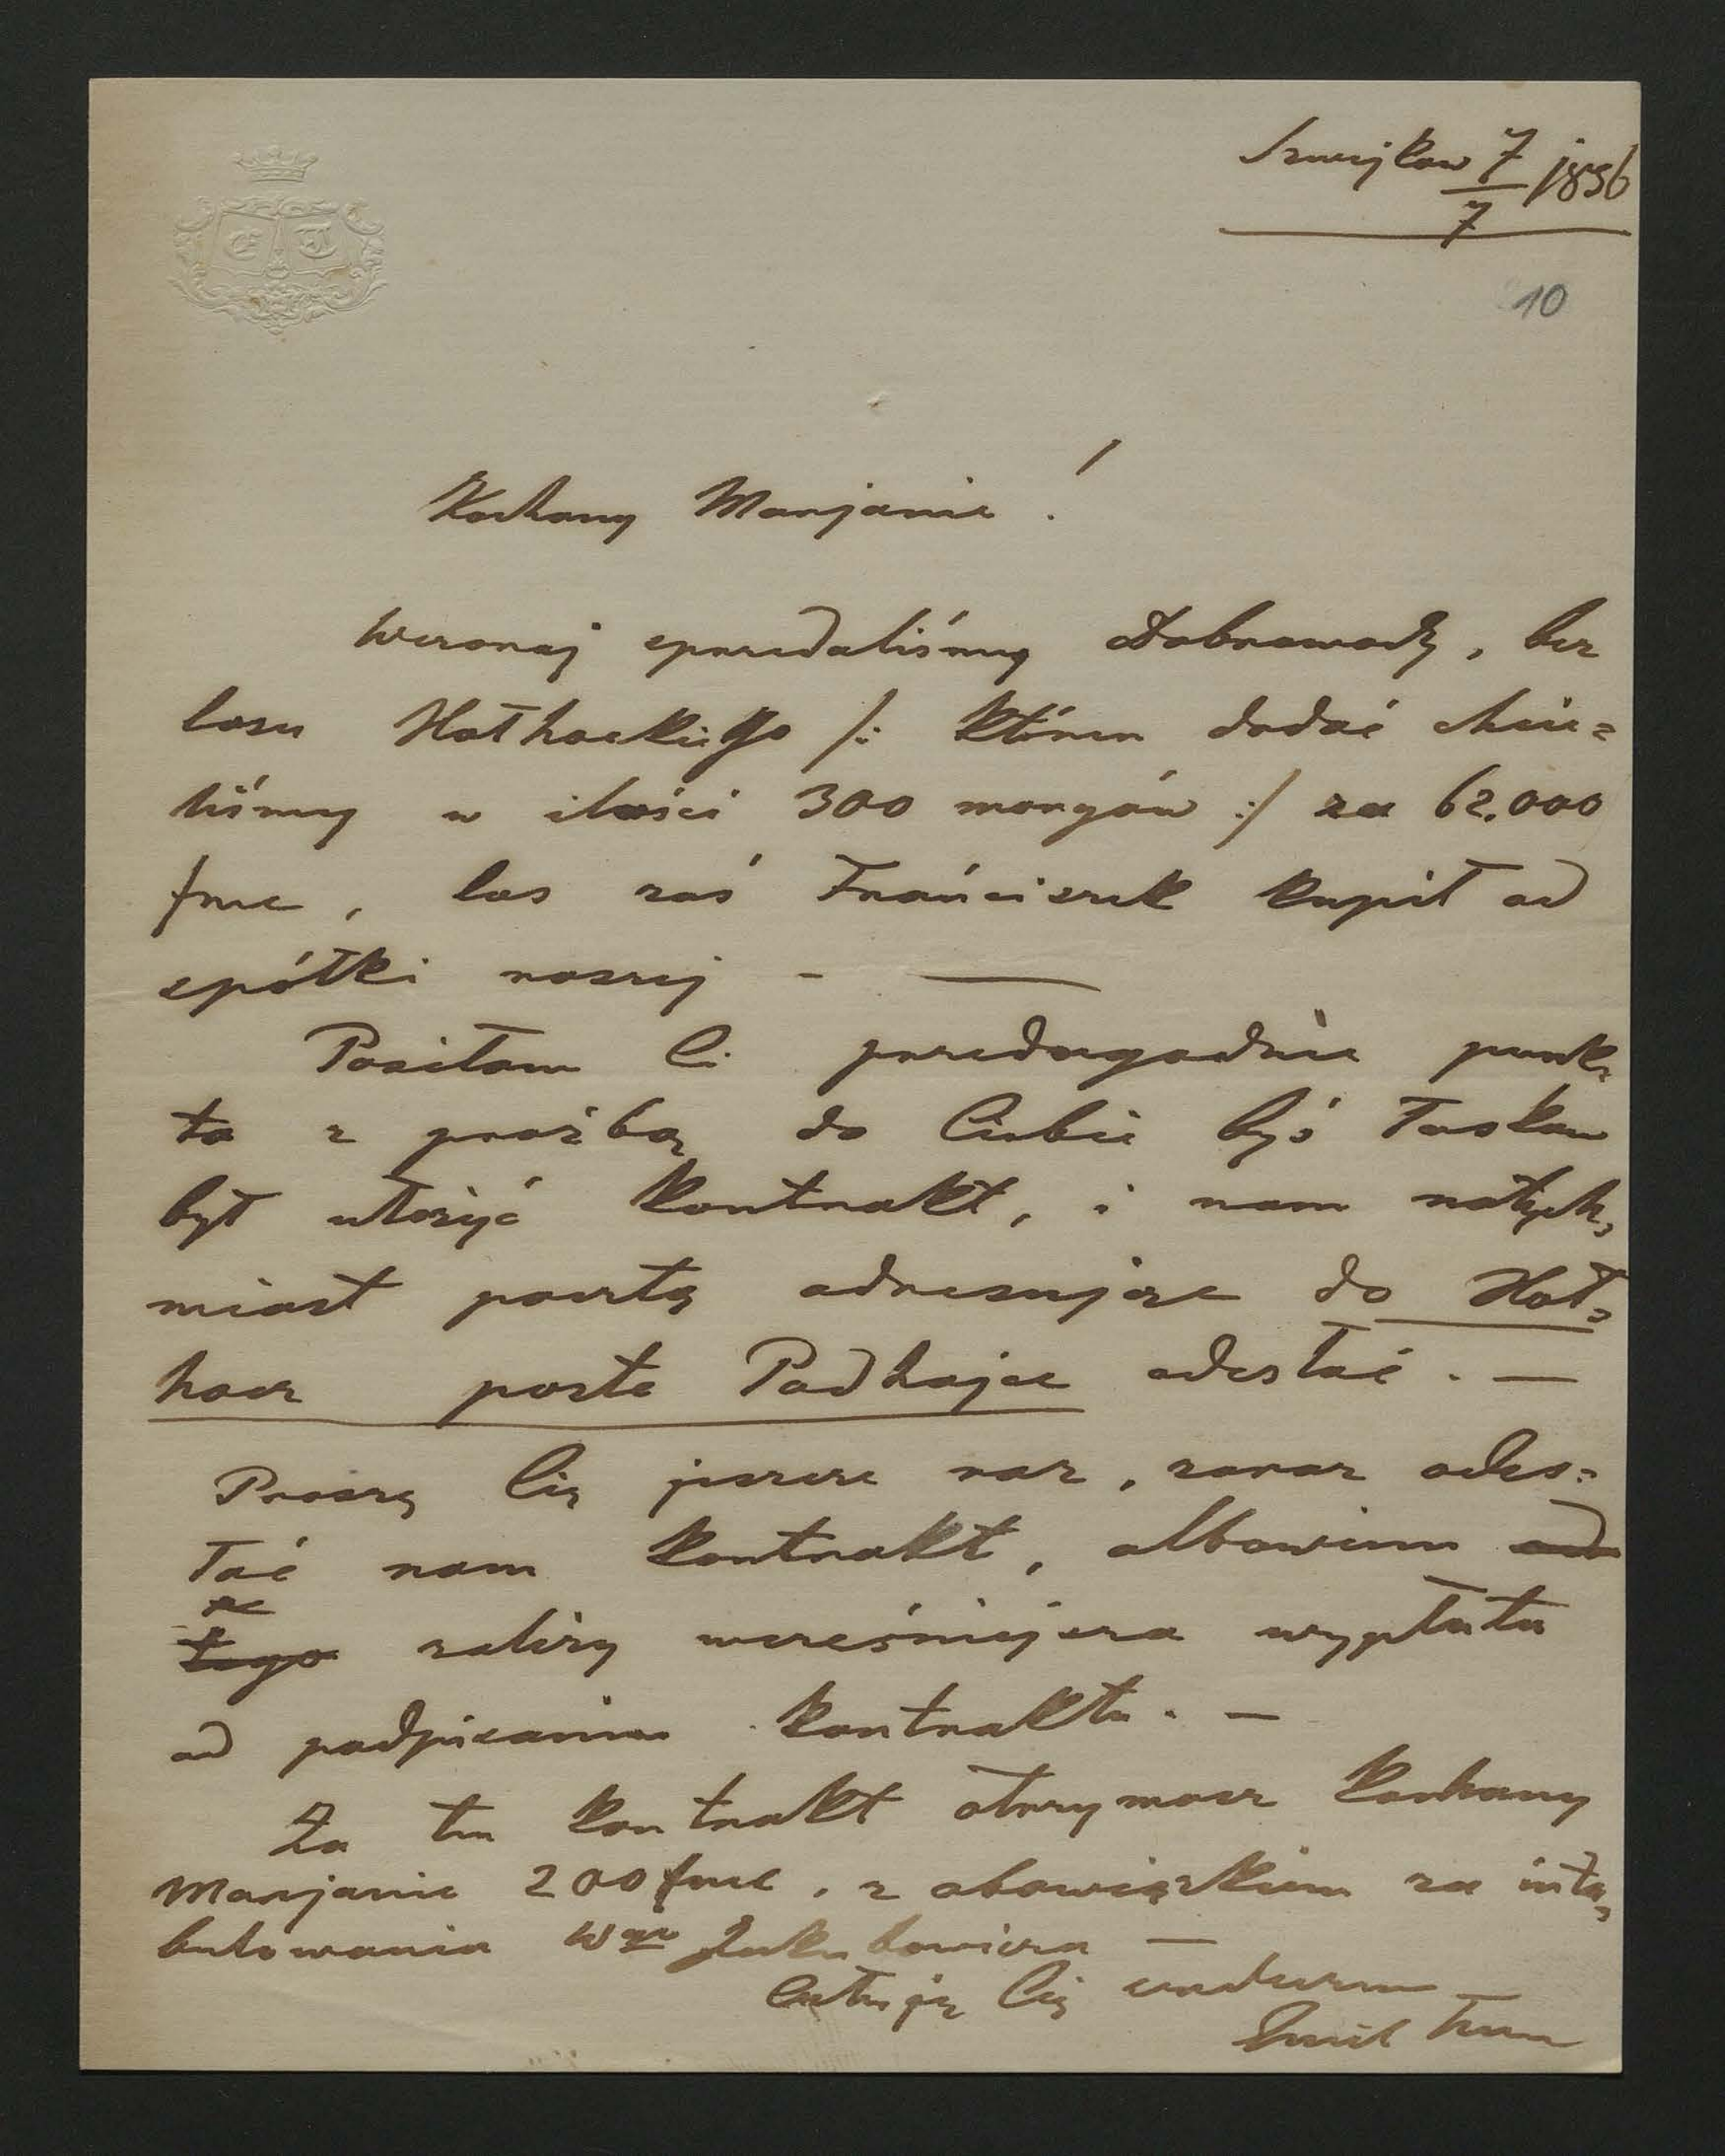 Szwejków 7/7 1896
10
E T
Kochany Marjanie!
Wczoraj sprzedaliśmy Dobrowody, bez
lasu Hołhockiego /: któren dodać chcie=
liśmy w ilości 300 morgów :/ za 62.000
frnc, las zaś Frańciszek kupił od
spółki naszej - —
Posiłam Ci przedugodnie punk=
ta z prośbą do Ciebie byś łaskaw
był ułożyć kontrakt, i nam natych=
miast pocztą adresując do Hoł=
hocz poste Podhajce odesłać. —
Proszę Cię jeszcze raz, zaraz odes=
łać nam kontrakt, albowiem od
tego zależy wcześniejsza wypłata
od podpisania kontraktu. —
Za ten kontrakt otrzymasz kochany
Marjanie 200 frnc, z obowiązkiem za inta=
bulowania Wgo Jakubowicza —
Całuję Cię serdecznie
Emil